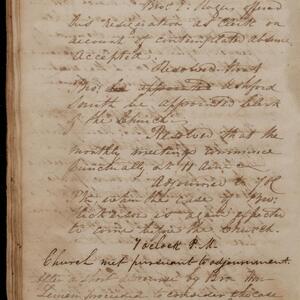 Bro. J. Rogers offered
his resignation as Clerk on
account of contemplated absence
Accepted.
Resolved that
Bro. appointed Ashford
Smith be appointed Clerk
of the Church.
Resolved that the
monthly meetings commence
punctually at 11 A.M.
Adjourned to 7
P.M. when the case of Bro.
is again expected
to come before the Church.
7 oclock P.M.
Church met pursuant to adjournment.
After a short discourse by Bro. Wm.
proceeded to consider the case